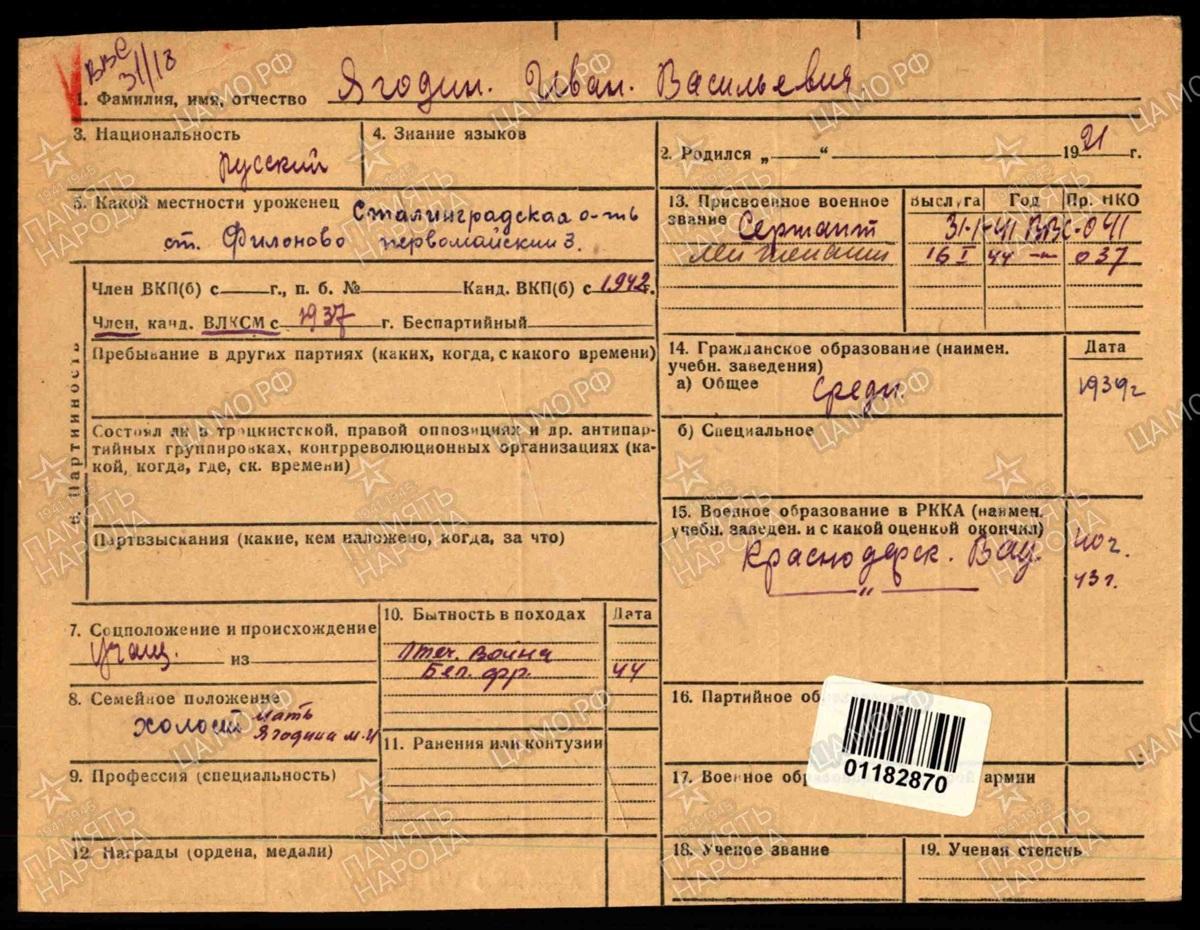 ВВС
31/18
1. Фамилия, имя, отчество Ягодин. Иван. Васильевич
3. Национальность
русский
4. Знание языков
2. Родился „ “ 1921 г.
5. Какой местности уроженец Сталинградская о-ть
ст. Филоново первомайский 3.
13. Присвоенное военное
звание
Выслуга Год Пр. НКО
Сержант 31-I-41 ВВС-041
лейтенант 16 I 44 — 037
6. Партийность
Член ВКП(б) с г., п. б. № Канд. ВКП(б) с 1942г.
Член, канд. ВЛКСМ с 1937 г. Беспартийный
Пребывание в других партиях (каких, когда, с какого времени)
Состоял ли в троцкистской, правой оппозициях и др. антипар-
тийных группировках, контрреволюционных организациях (ка-
кой, когда, где, ск. времени)
Партвзыскания (какие, кем наложено, когда, за что)
14. Гражданское образование (наимен.
учебн. заведения)
Дата
а) Общее средн. 1939г
б) Специальное
15. Военное образование в РККА (наимен.
учебн. заведен. и с какой оценкой окончил)
Краснодарск. ВАУ. 40г.
— „ — 43г.
7. Соцположение и происхождение
учащ. из
8. Семейное положение
холост мать
Ягодина М.И
9. Профессия (специальность)
10. Бытность в походах Дата
Отеч. война
Бел. фр. 44
11. Ранения или контузии
12. Награды (ордена, медали)
16. Партийное об
17. Военное обр армии
01182870
18. Ученое звание
19. Ученая степень
ЦАМО РФ
1941-1945
ПАМЯТЬ
НАРОДА